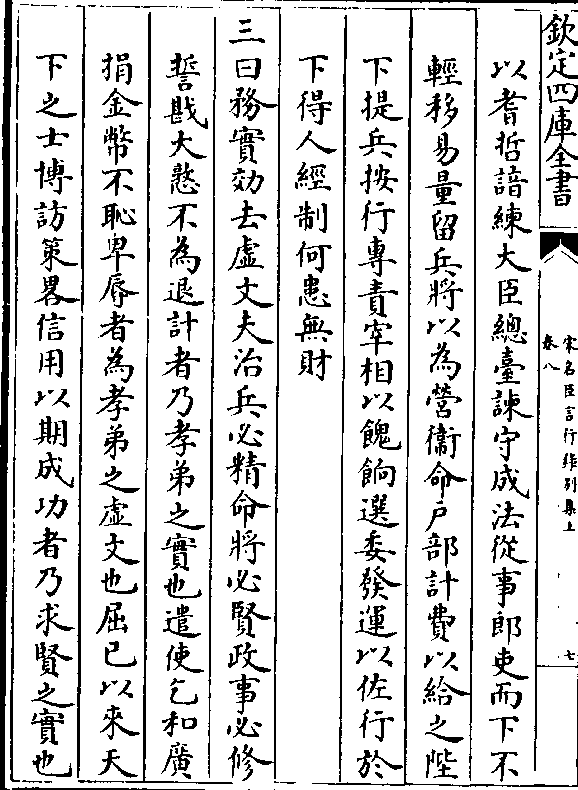 欽定四庫全書
宋名臣言行錄别集上
卷八
七
以耆哲諳練大臣總臺諫守成法從事郎吏而下不
輕移易量留兵將以為營衞命户部計費以給之陛
下提兵按行專責宰相以餽餉選委發運以佐行於
下得人經制何患無財
三曰務實効去虚文夫治兵必精命將必賢政事必修
誓戡大憝不為退計者乃孝弟之實也遣使乞和廣
捐金幣不恥卑辱者為孝弟之虚文也屈已以來天
下之士博訪策畧信用以期成功者乃求賢之實也